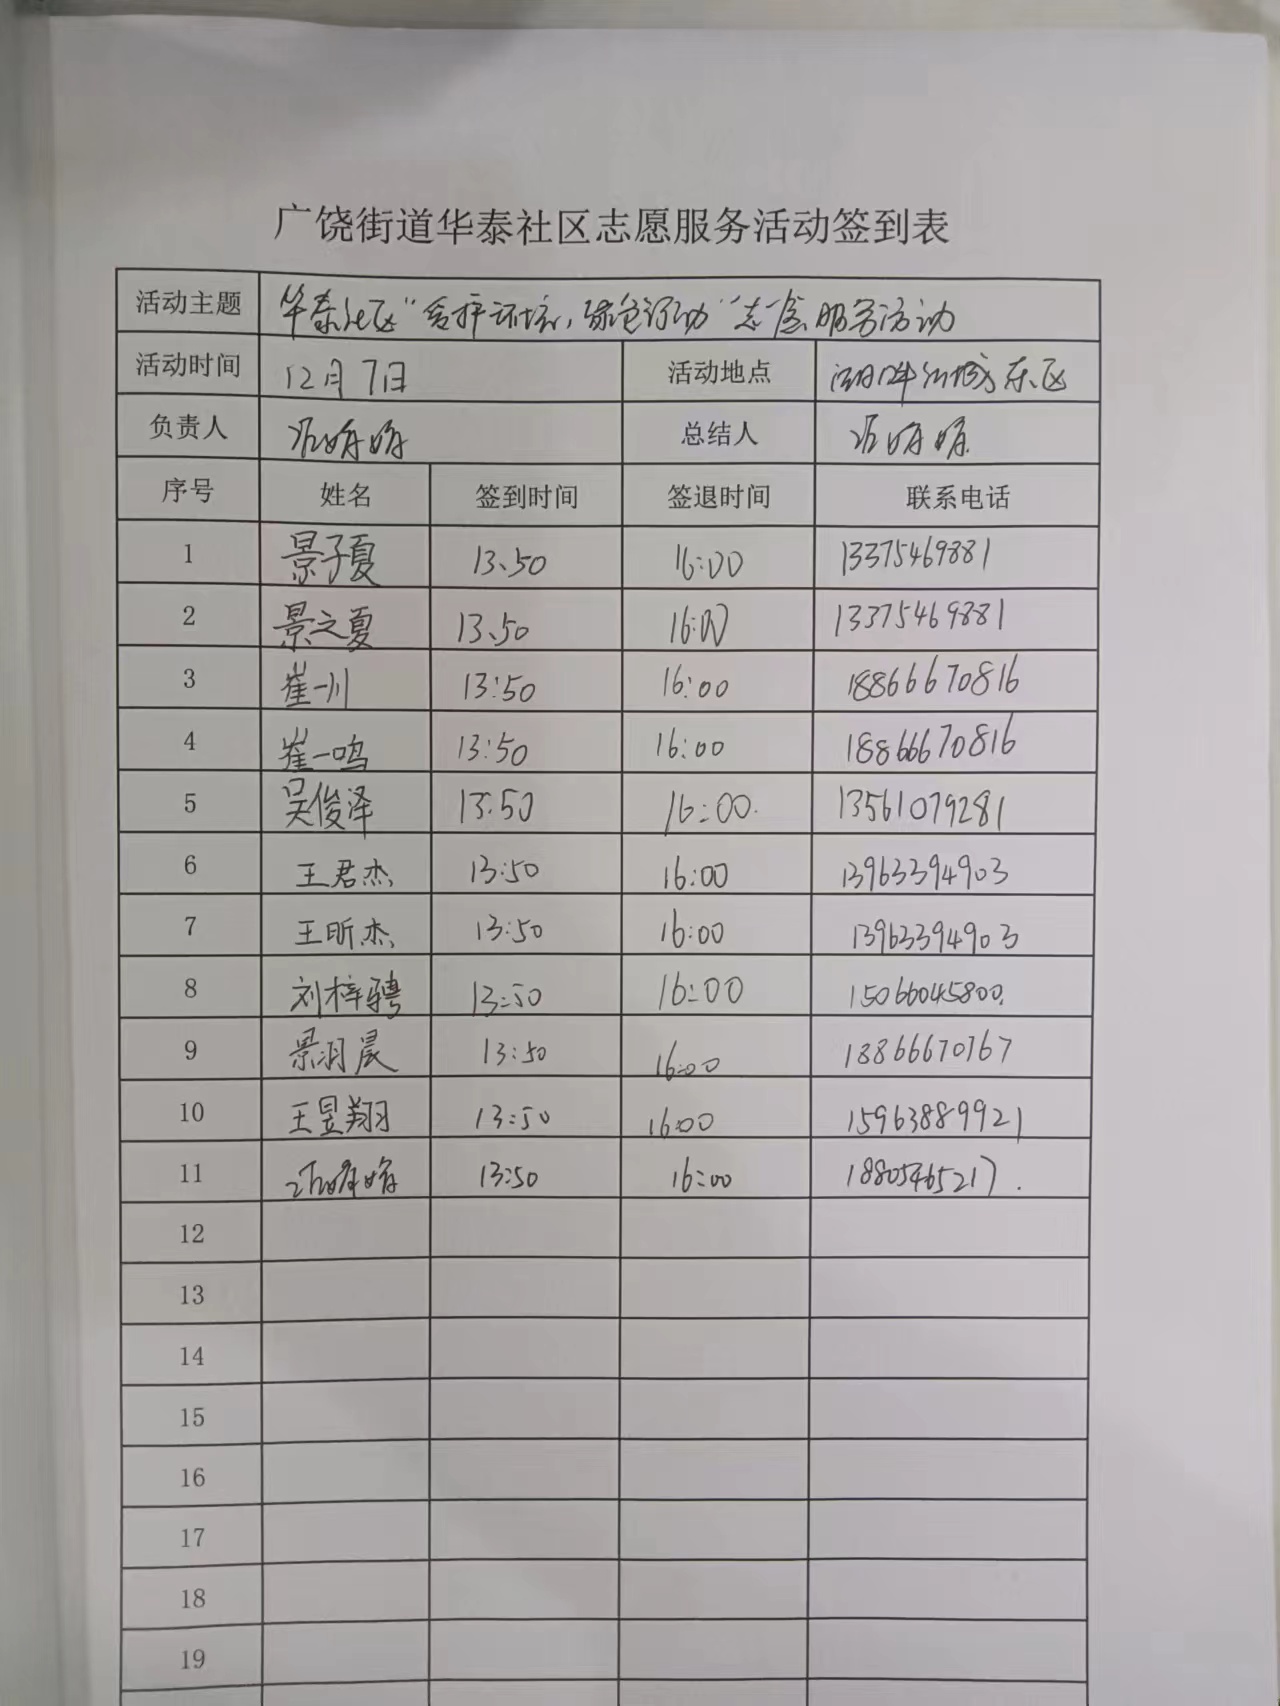 广饶街道华泰社区志愿服务活动签到表
活动主题 华泰社区“爱护环境，绿色行动”志愿服务活动
活动时间 12月7日 活动地点 东区
负责人 总结人
序号 姓名 签到时间 签退时间 联系电话
1 景子夏 13:50 16:00 13375469881
2 景之夏 13:50 16:00 13375469881
3 崔一川 13:50 16:00 18866670816
4 崔一鸣 13:50 16:00 18866670816
5 吴俊泽 13:50 16:00 13561079281
6 王君杰 13:50 16:00 13963394903
7 王昕杰 13:50 16:00 13963394903
8 刘梓骋 13:50 16:00 15066045800
9 景羽晨 13:50 16:00 18866670767
10 王昱翔 13:50 16:00 15963889921
11 13:50 16:00 18805465217
12
13
14
15
16
17
18
19